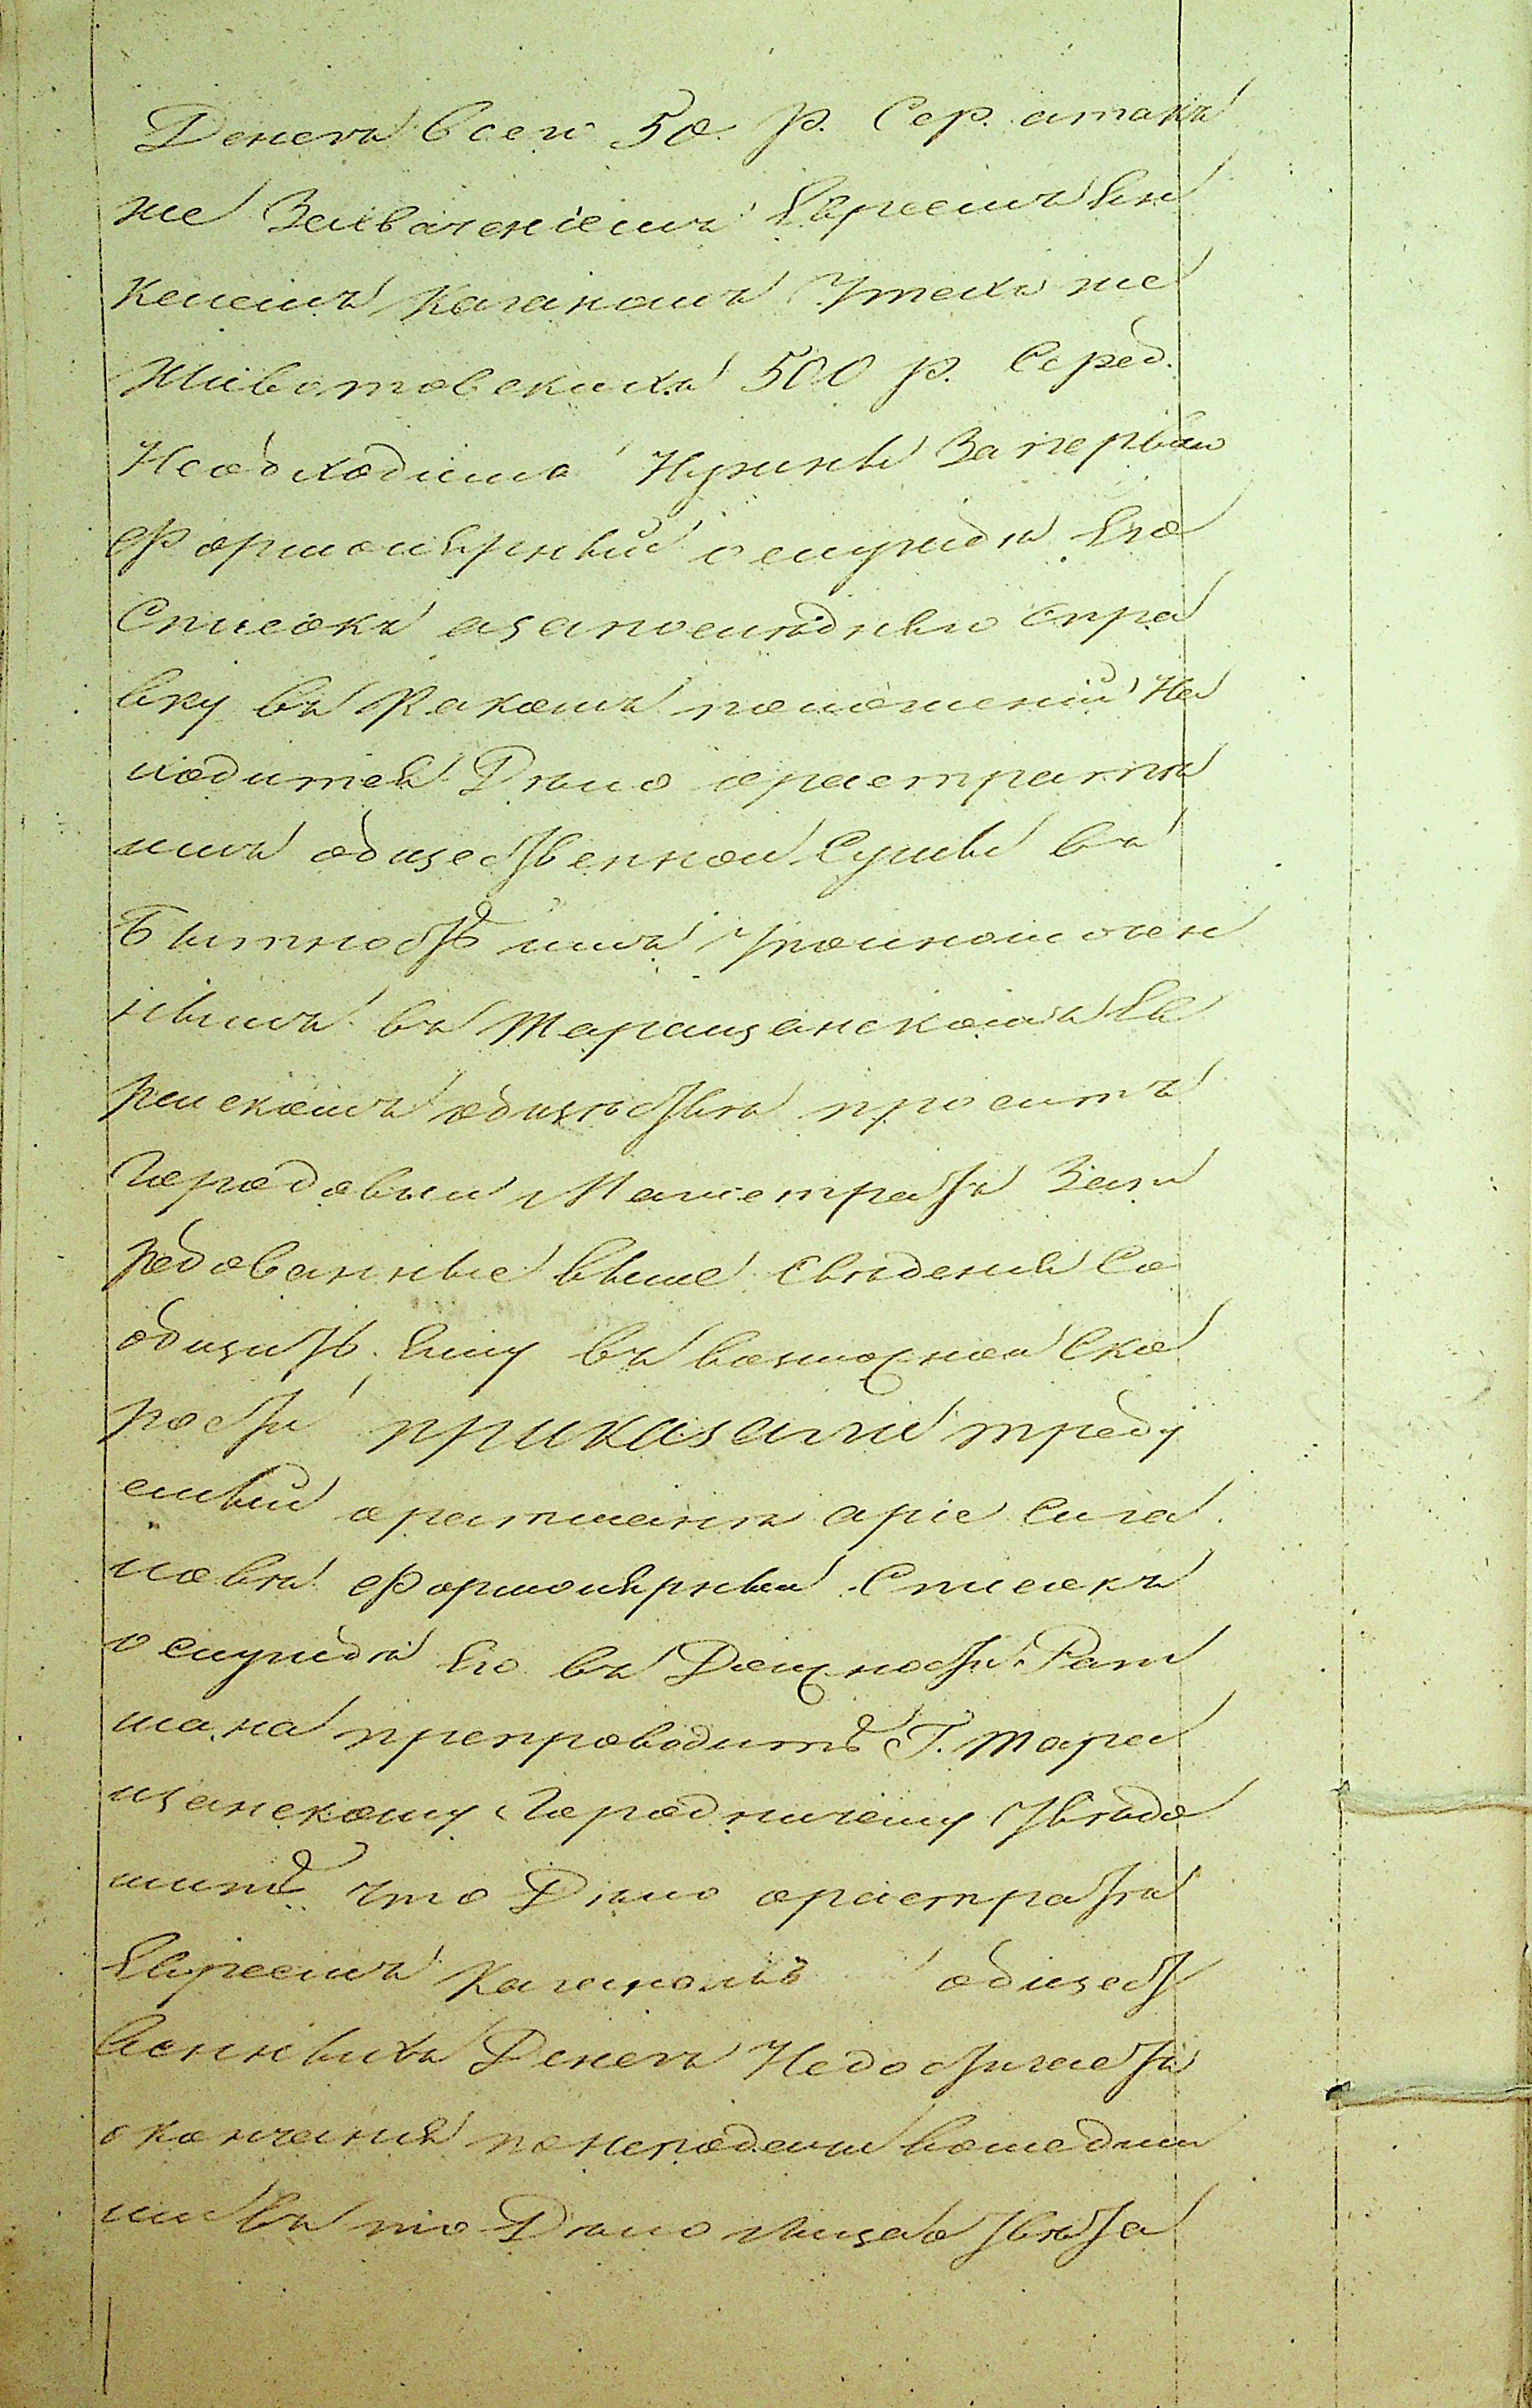 Денегъ всего 50 р. Сер. атакъ
же Захваченіемъ Евреемъ Ян
келемъ Каганомъ Утехъ же
Животовскихъ 500 р. Сереб.
Необходимо Нужны Запервыю
Формолярный ослужбѣ Его
Списокъ азапослѣднею Спра
вку въ Какомъ положеніи На
ходитея Дѣло орастратѣ
имъ общественной Сумы въ
Бытность имъ Уполномочен
нымъ въ Таращанскомъ Ев
рейскомъ обществѣ проситъ
Городовый Магистратъ Зат
ребованные выше Сведенія Со
общить Ему въ возможной Ско
рости приказали требу
емый оратманѣ аріе
Формолярный Списокъ
ослужбѣ Его въ Должности Рат
мана препроводить Г. Тара
щанскому Городничему Увѣдо
мить что Дѣло орастратѣ
Евреемъ Каганомъ общест
венныхъ Денегъ Недостигаетъ
окончанія понеподачи вошедши
ми въ то Дѣло лицаы